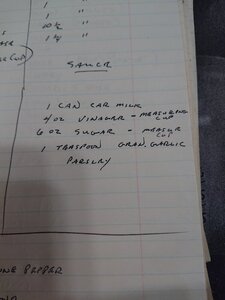 1 "
1 "
1 "
10 ½ "
1 ½ "
SAUCE
1 CAN CAR MILK
4/0Z VINAGER - MEASURING CUP
6 OZ SUGAR - MEASUR CUP
1 TEASPOON GRAN. GARLIC
PARSLEY
PEPPER